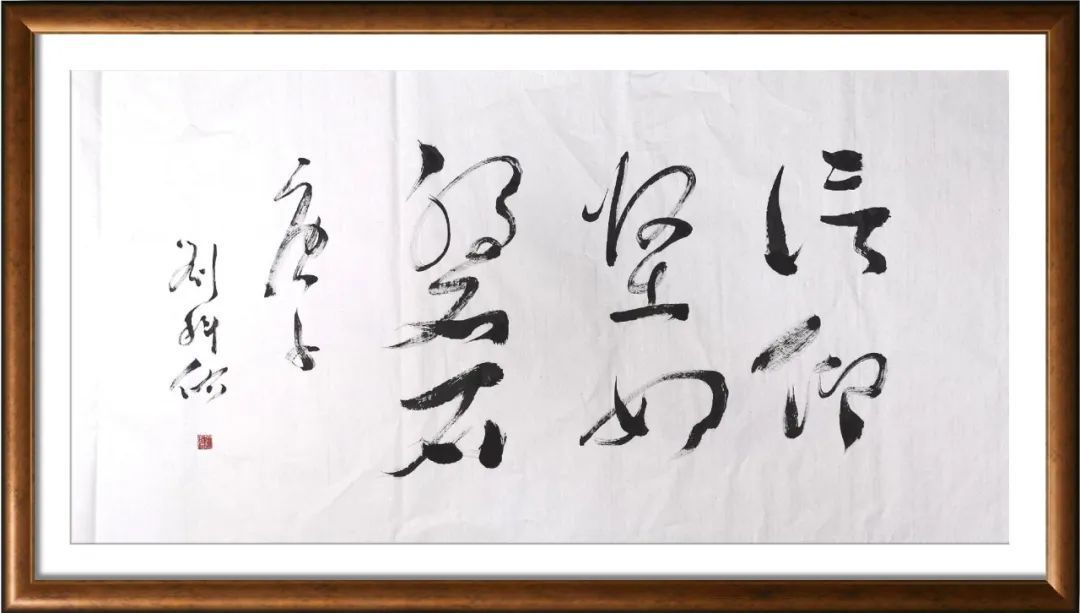 信仰
坚如
磐石
庚子
劉科